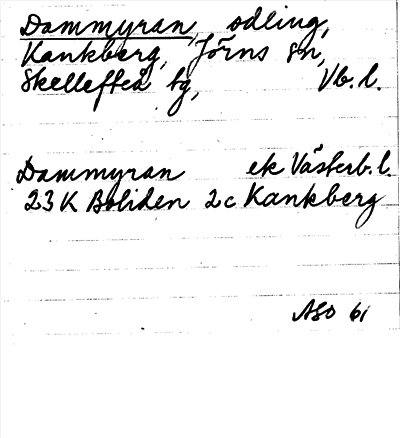 Dammyran, odling,
Kankberg, Jörns sn,
Skellefteå tg, Vb. l.
Dammyran ek Västerb. l.
23 K Boliden 2c Kankberg
ASO 61